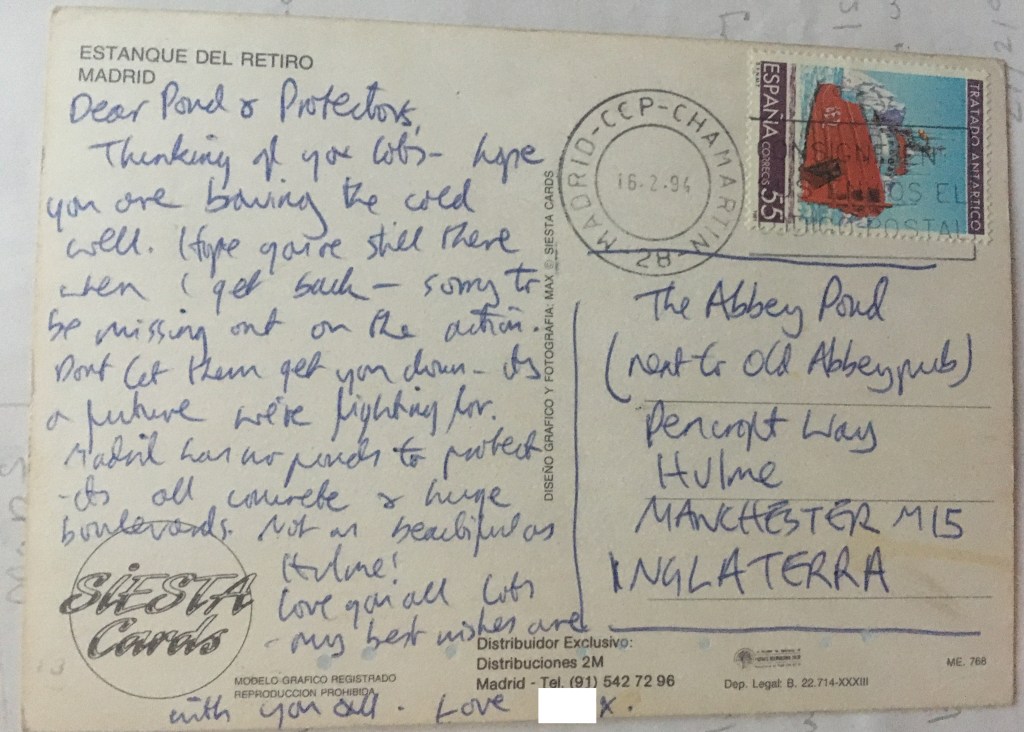 ESTANQUE DEL RETIRO
MADRID
Dear Pond & Protectors,
Thinking of you lots - hope
you are braving the cold
well. Hope you're still there
when I get back - sorry to
be missing out on the action.
Dont let them get you down - its
a future we're fighting for.
Madrid has no ponds to protect
- its all concrete & huge
boulevards. Not as beautiful as
Hulme!
Love you all lots
- my best wishes are
with you all. Love x.
SIESTA
Cards
MODELO GRAFICO REGISTRADO
REPRODUCCION PROHIBIDA
DISEÑO GRAFICO Y FOTOGRAFIA: MAX © SIESTA CARDS
Distribuidor Exclusivo:
Distribuciones 2M
Madrid - Tel. (91) 542 72 96
MADRID-CCP-CHAMARTIN
16.2.94
28
ESPAÑA CORREOS 55
TRATADO ANTARTICO
The Abbey Pond
(next to Old Abbey pub)
Pencroft Way
Hulme
MANCHESTER M15
INGLATERRA
Dep. Legal: B. 22.714-XXXIII
ME. 768